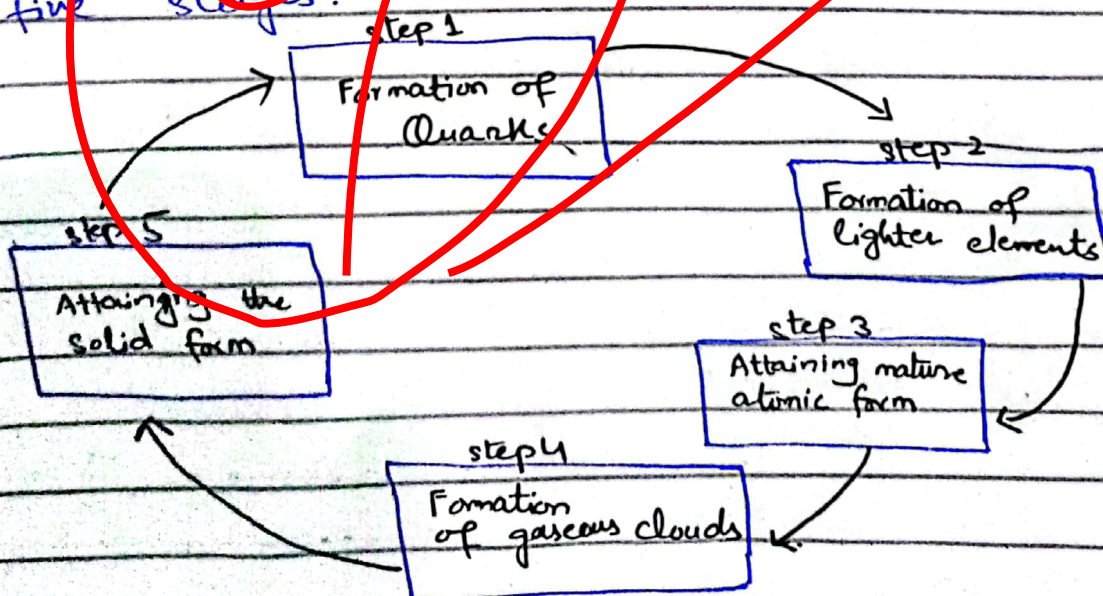 five stages.
step 1
Formation of
Quarks
step 2
Formation of
lighter elements
step 3
Attaining mature
atomic form
step 4
Fomation
of gaseous clouds
step 5
Attainging the
solid form